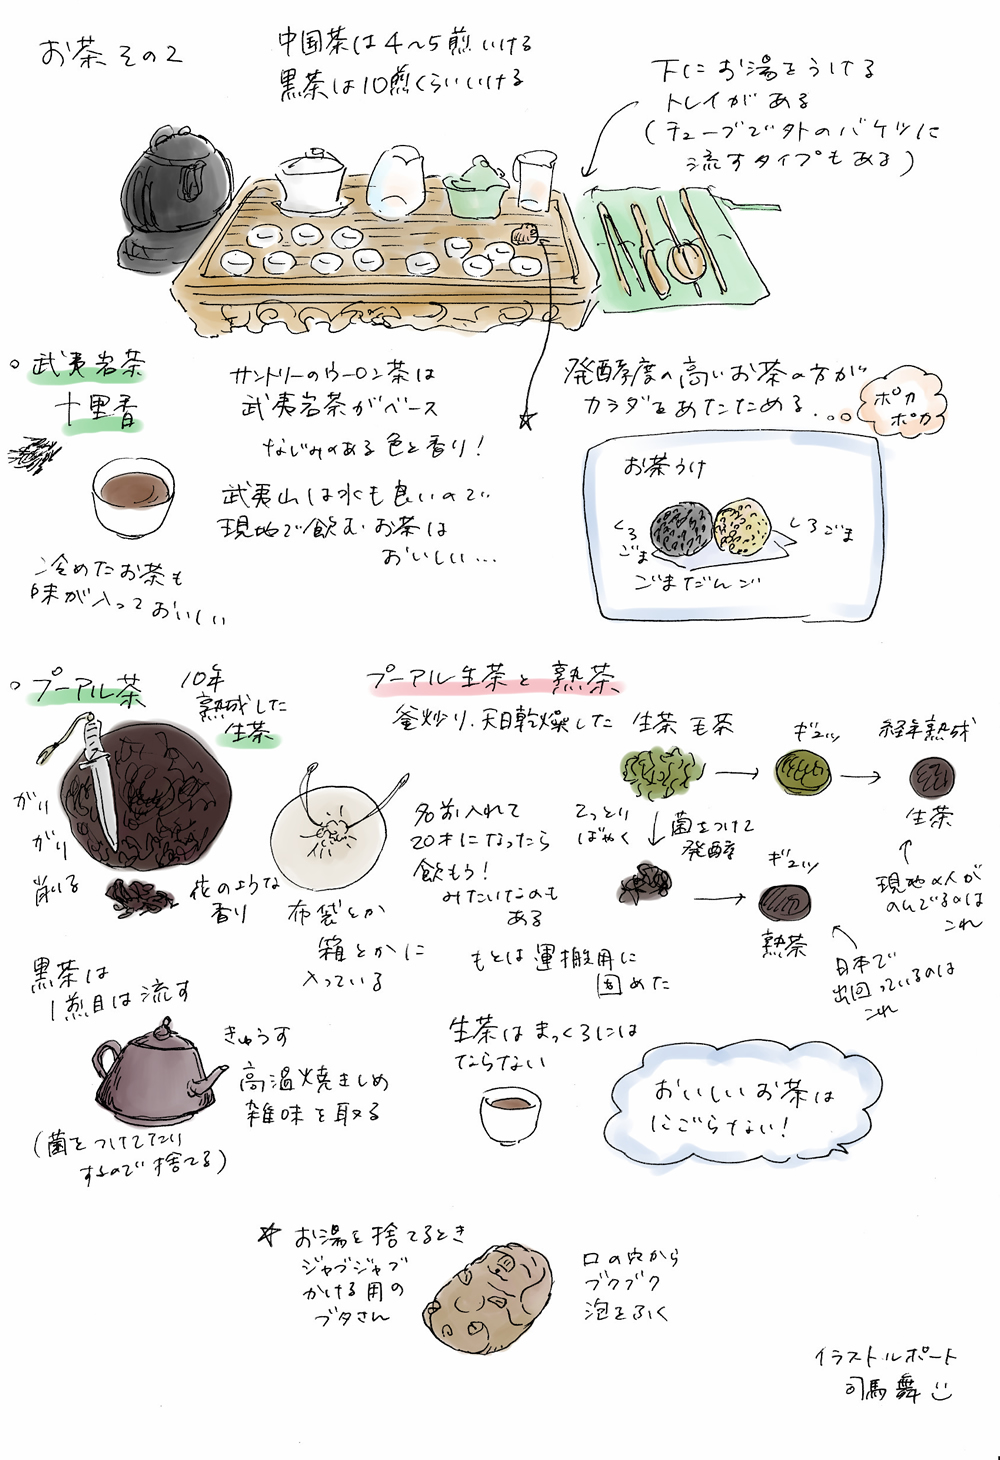 お茶 その2
中国茶は4〜5煎いける
黒茶は10煎くらいいける
下にお湯をうける
トレイがある
(チューブで外のバケツに
流すタイプもある)
武夷岩茶
十里香
サントリーのウーロン茶は
武夷岩茶がベース
なじみのある色と香り!
武夷山は水も良いので
現地で飲むお茶は
おいしい...
冷めたお茶も
味が入っておいしい
発酵度の高いお茶の方が
カラダをあたためる...
ポカ
ポカ
お茶うけ
くろ
ごま
しろごま
ごまだんご
プーアル茶
10年
熟成した
生茶
がり
がり
削る
花のような
香り
布袋とか
箱とかに
入っている
名前入れて
20才になったら
飲もう!
みたいなのも
ある
もとは運搬用に
固めた
プーアル生茶と熟茶
釜炒り、天日乾燥した
生茶 毛茶
ギュッ
経年熟成
生茶
てっとり
ばやく
菌をつけて
発酵
ギュッ
熟茶
現地の人が
のんでるのは
これ
日本で
出回っているのは
これ
黒茶は
1煎目は流す
きゅうす
高温焼きしめ
雑味を取る
(菌をつけてたり
するので捨てる)
生茶はまっくろには
ならない
おいしいお茶は
にごらない!
☆ お湯を捨てるとき
ジャブジャブ
かける用の
ブタさん
口の穴から
ブクブク
泡をふく
イラストルポート
司馬舞